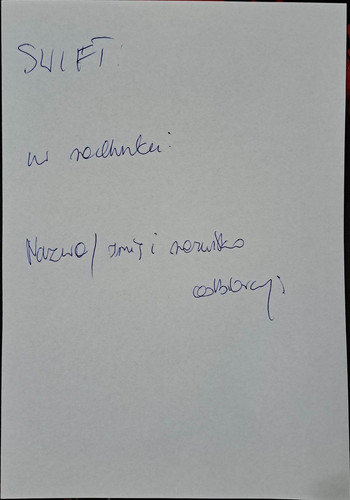 SWIFT:
nr rachunku:
Nazwa/ imię i nazwisko
odbiorcy: